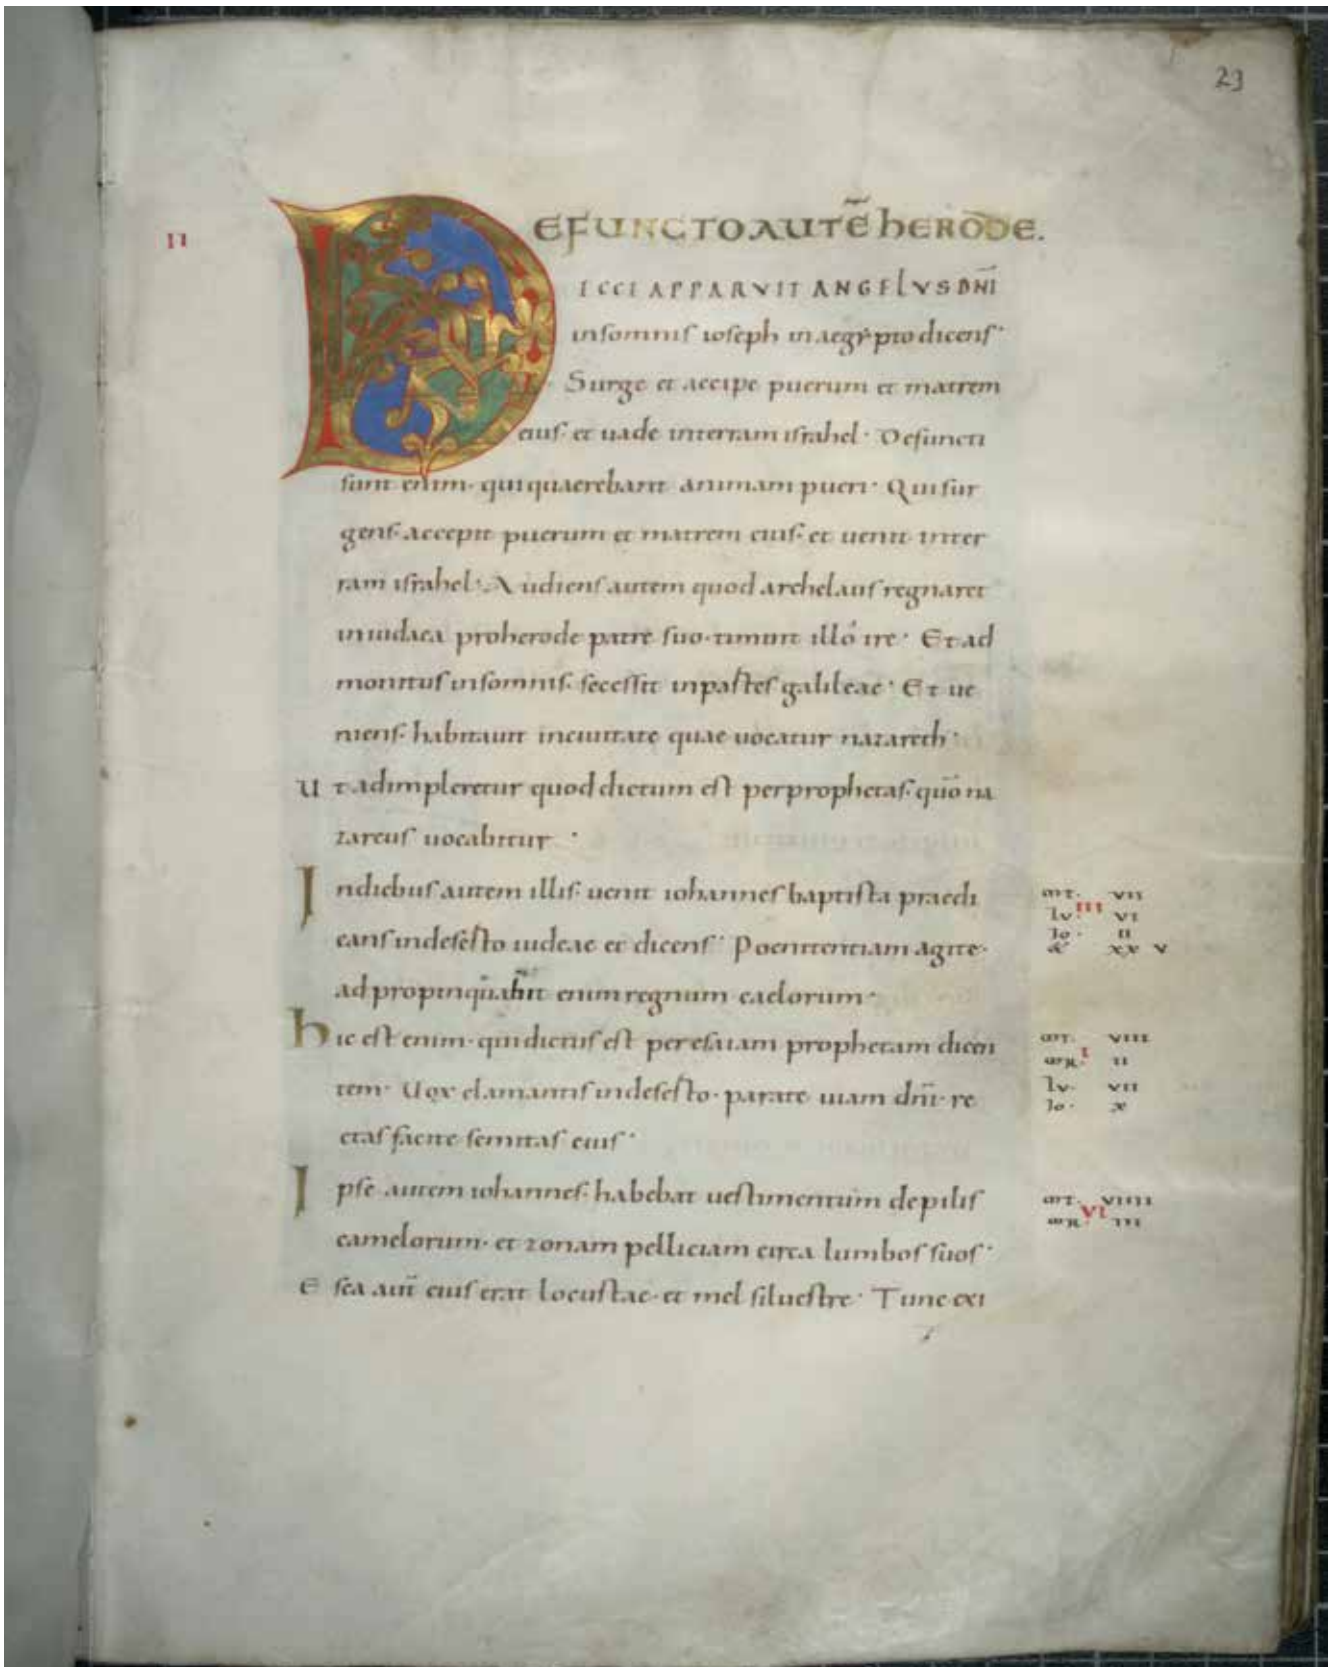 23
II
DEFUNCTO AUTĒ hERODE.
ECCE APPARVIT ANGELVS DNI
insomnis ioseph in aegypto dicens·
Surge et accipe puerum et matrem
eius· et uade interram israhel· Defuncti
sunt enim· qui quaerebant animam pueri· Qui sur
gens· accepit puerum et matrem eius· et uenit inter
ram israhel· Audiens autem quod archelaus regnaret
iniudaea proherode patre suo· timuit illo ire· Et ad
monitus insomnis· secessit inpartes galileae· Et ue
niens· habitauit inciuitate quae uocatur nazareth·
Ut adimpleretur quod dictum est perprophetas· quō na
zareus uocabitur·
Indiebus autem illis· uenit iohannes baptista praedi
cans indeserto iudeae et dicens· Poenitentiam agite·
ad propinquabit enim regnum caelorum·
hic est enim· qui dictus est per esaiam prophetam dicen
tem· Uox clamantis indeserto· parate uiam dn̄i· re
ctas facite semitas eius·
Ipse autem iohannes· habebat uestimentum depilis
camelorum· et zonam pelliciam circa lumbos suos·
Esca aut̄ eius erat locustae· et mel siluestre· Tunc exi
MT· VII
III
LV· VI
IO· II
& XXV
MT· VIII
I
MR· II
LV· VII
IO· X
MT· VIIII
VI
MR· III